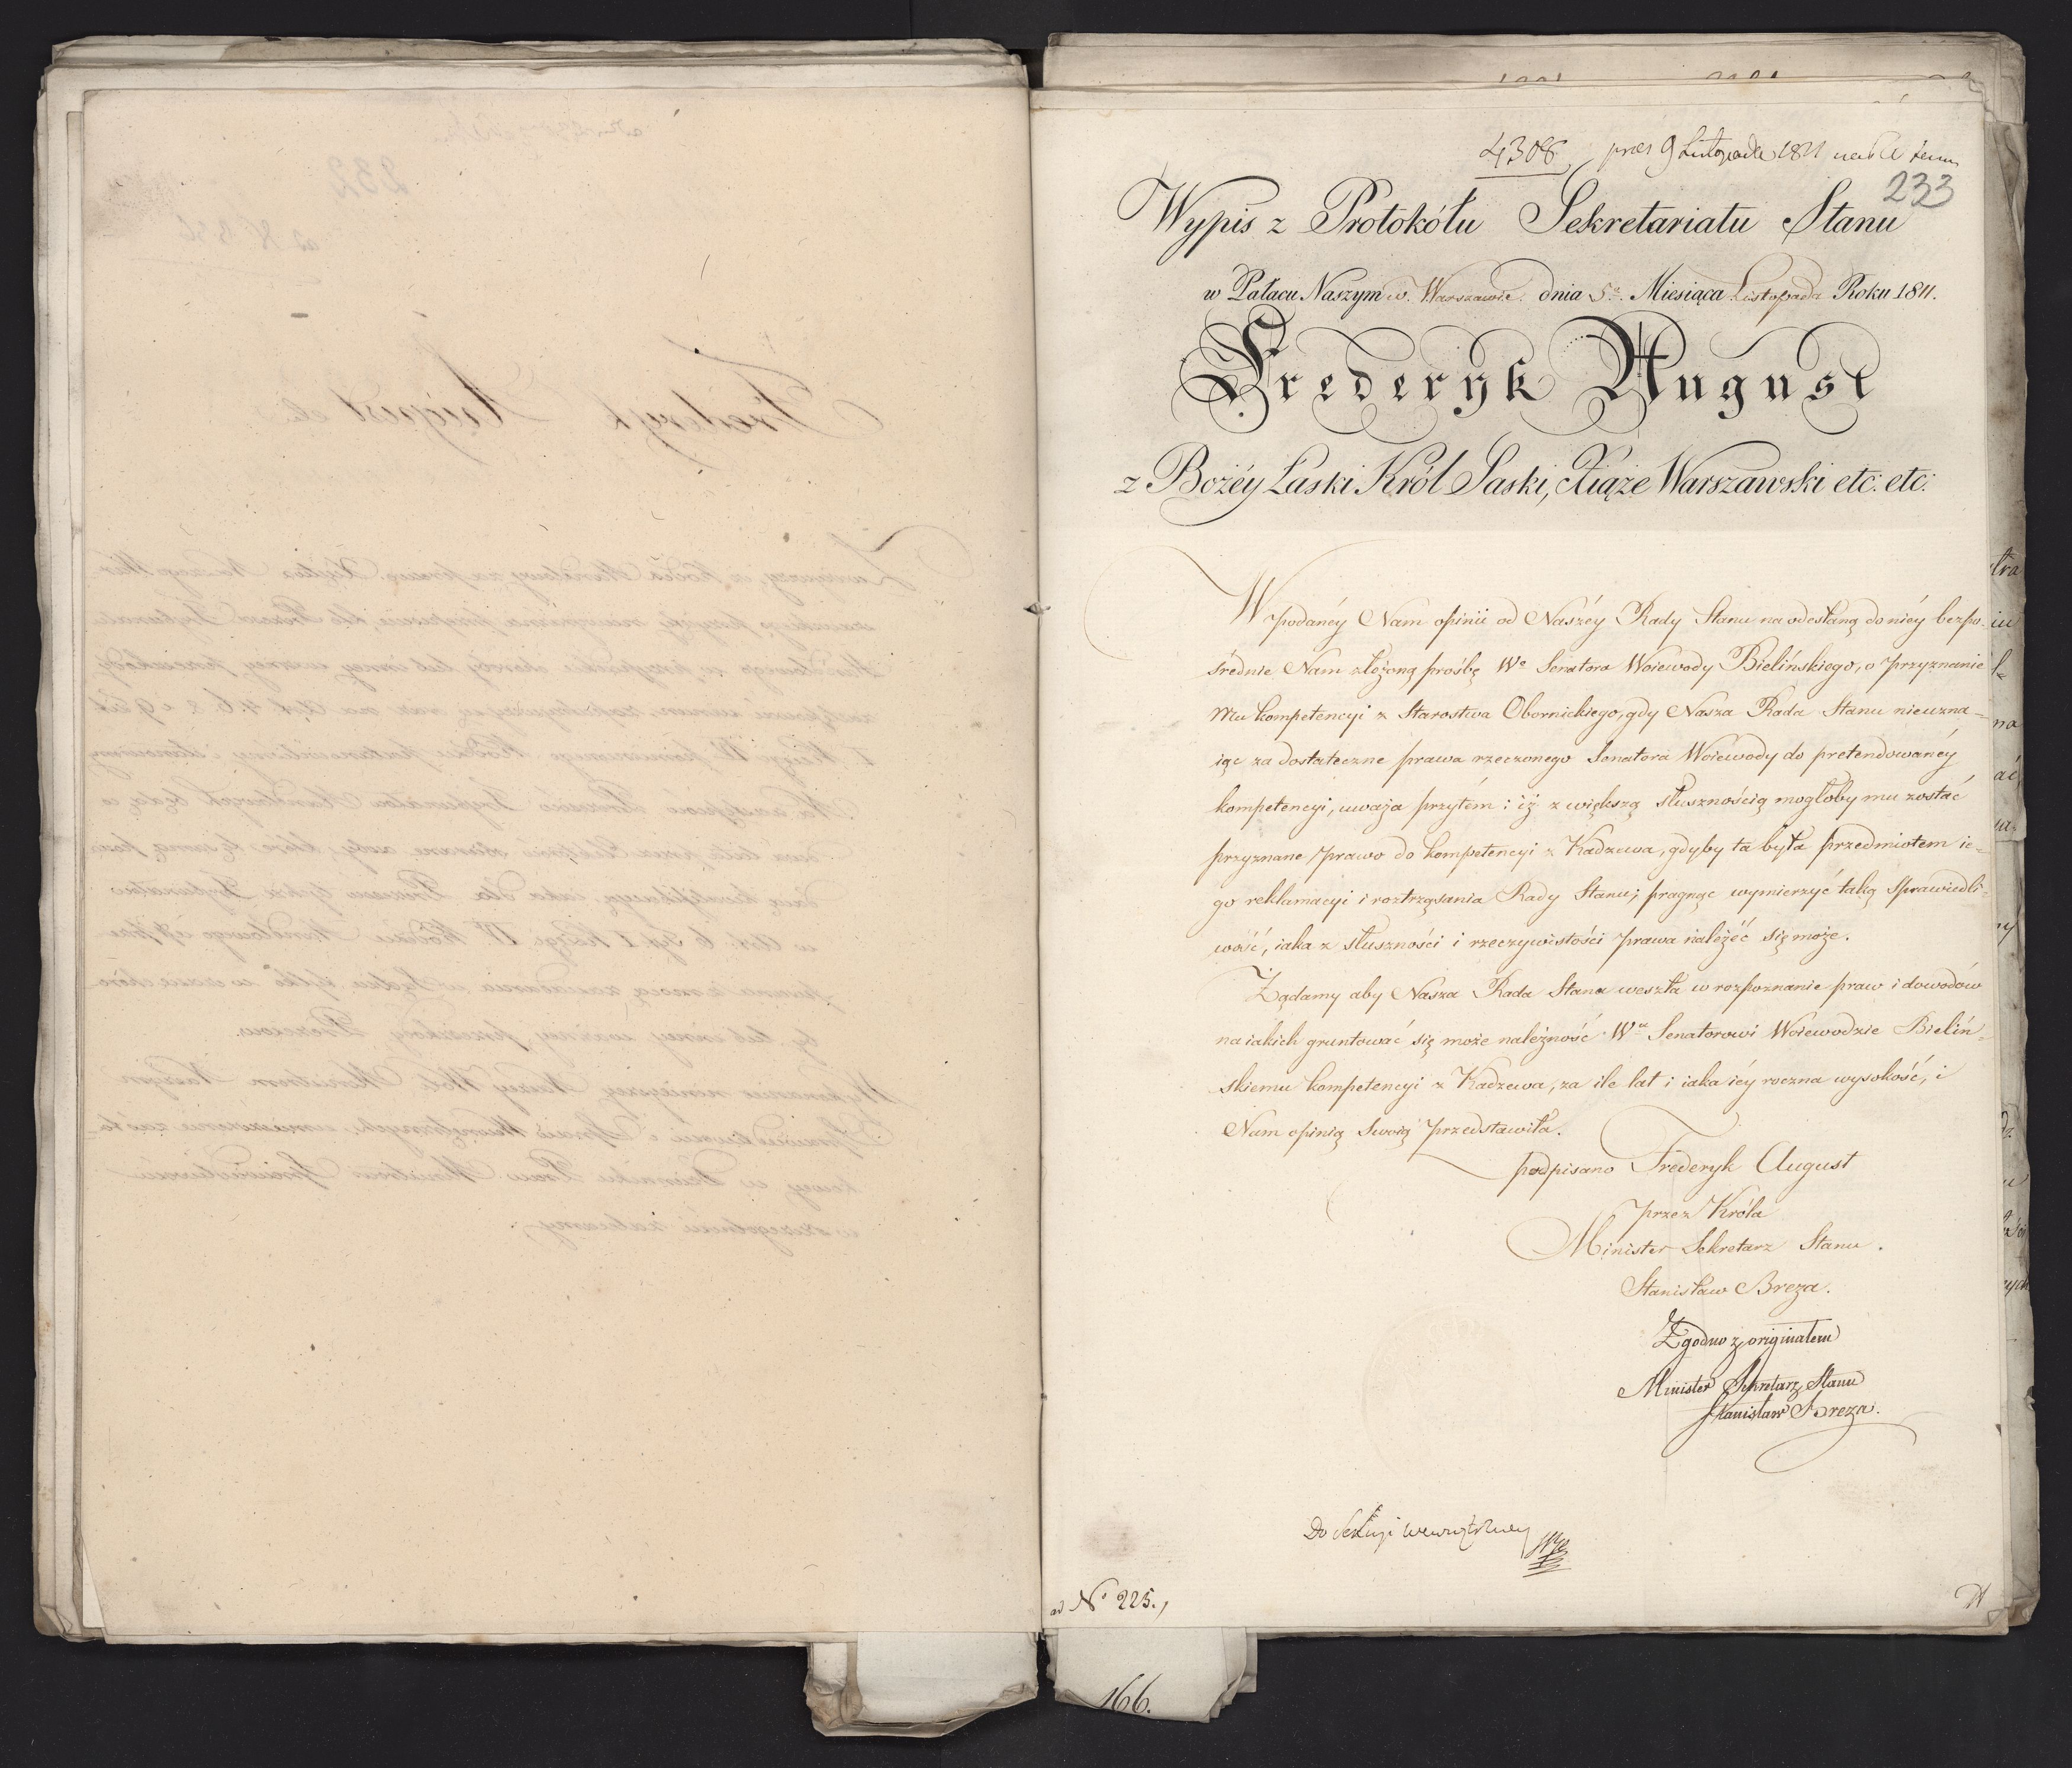 4308. pres 9 Listopada 1811
233
Wypis z Protokółu Sekretariatu Stanu
w Pałacu Naszym w. Warszawie. dnia 5go. Miesiąca Listopada Roku 1811.
Frederyk August
z Bożéy Łaski Król Saski, Xiąże Warszawski etc: etc:
W podanéy Nam opinii od Naszéy Rady Stanu na odesłaną do niéy bezpo-
średnie Nam złożoną prośbę We Senatora Woiewody Bielińskiego, o przyznanie
Mu kompetencyi z Starostwa Obornickiego, gdy Nasza Rada Stanu nieuzna-
iąc za dostateczne prawa rzeczonego Senatora Woiewody do pretendowanéy
kompetencyi, uważa przytém: iż z większą słusznością mogłoby mu zostać
przyznane prawo do kompetencyi z Kadzewa, gdyby ta była przedmiotem ie-
go reklamacyi i roztrząsania Rady Stanu; pragnąc wymierzyć taką Sprawiedli-
wość, iaka z słuszności i rzeczywistości prawa należéć się może.
Żądamy aby Nasza Rada Stanu weszła w rozpoznanie praw i dowodów
na iakich gruntować się może należność Wu Senatorowi Woiewodzie Bieliń-
skiemu kompetencyi z Kadzewa, za ile lat i iaka iéy roczna wysokość, i
Nam opinią Swoią przedstawiła.
podpisano Frederyk August
przez Króla
Minister Sekretarz Stanu.
Stanisław Breza.
Zgodno z originałem
Minister Sekretarz Stanu
Stanisław Breza.
Do Sekcyi wewnętrzney
ad No 225.
166.